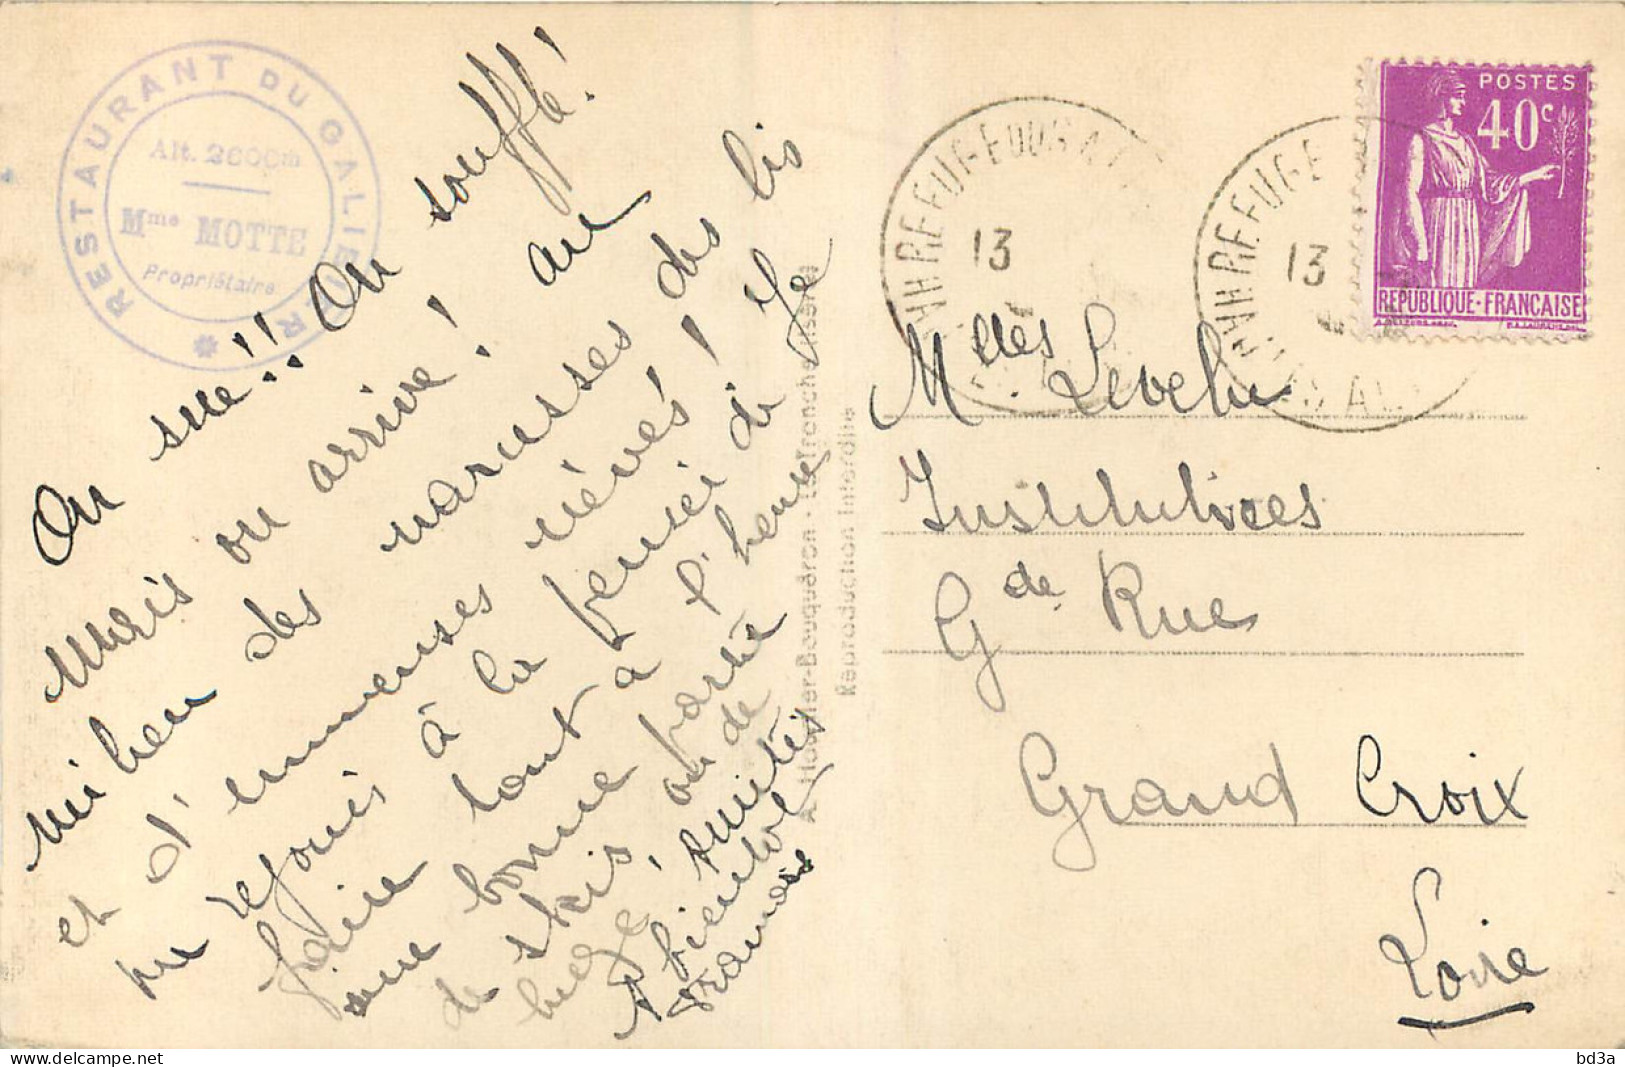 RESTAURANT DU GALIBIER
Alt. 2600m
Mme MOTTE
Propriétaire
On sue!! On souffle!
Mais on arrive! au
milieu des narcisses des lis
et d'immenses névés!
me réjouis à la pensée de
faire tout à l'heure
une bonne partie
de skis, ou de
luge
amitiés
A bientôt
Françoise
Reproduction Interdite
REFUGE DU GAL
13
REFUGE
13
POSTES
40c
REPUBLIQUE-FRANÇAISE
Melles
Institutrices
Gde Rue
Grand Croix
Loire
delcampe.net
bd3a